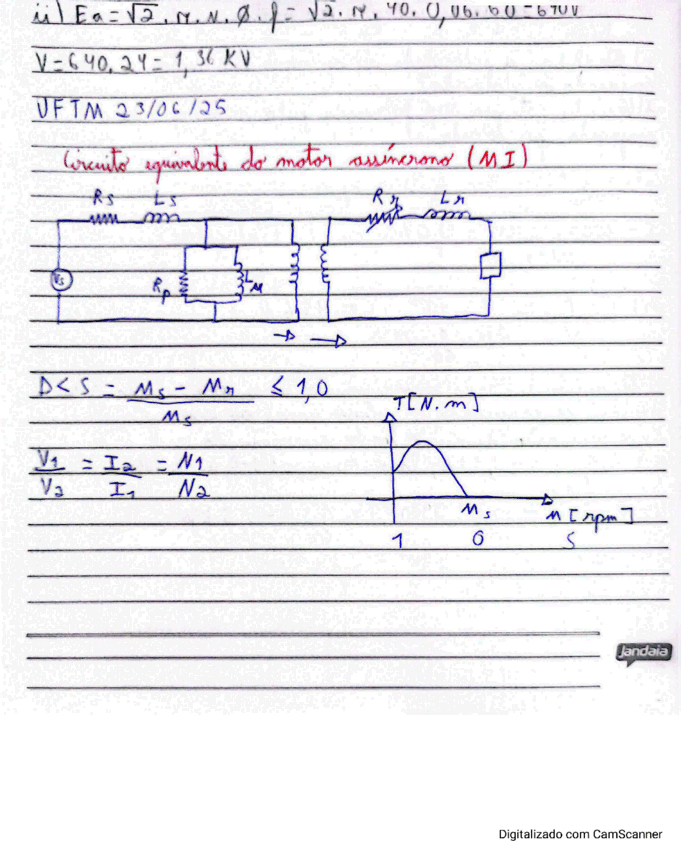 ii) Ea = √2 . π . N . Ø . f = √2 . π . 40 . 0,06 . 60 = 640V
V = 640,24 = 1,36 KV
UFTM 23/06/25
Circuito equivalente do motor assíncrono (MI)
Rs Ls Rr Lr
Vs Rp LM
0 < S = Ms - Mr ≤ 1,0
Ms
T[N.m]
V1 = I2 = N1
V2 I1 N2
Ms M [rpm]
1 0 S
jandaia
Digitalizado com CamScanner